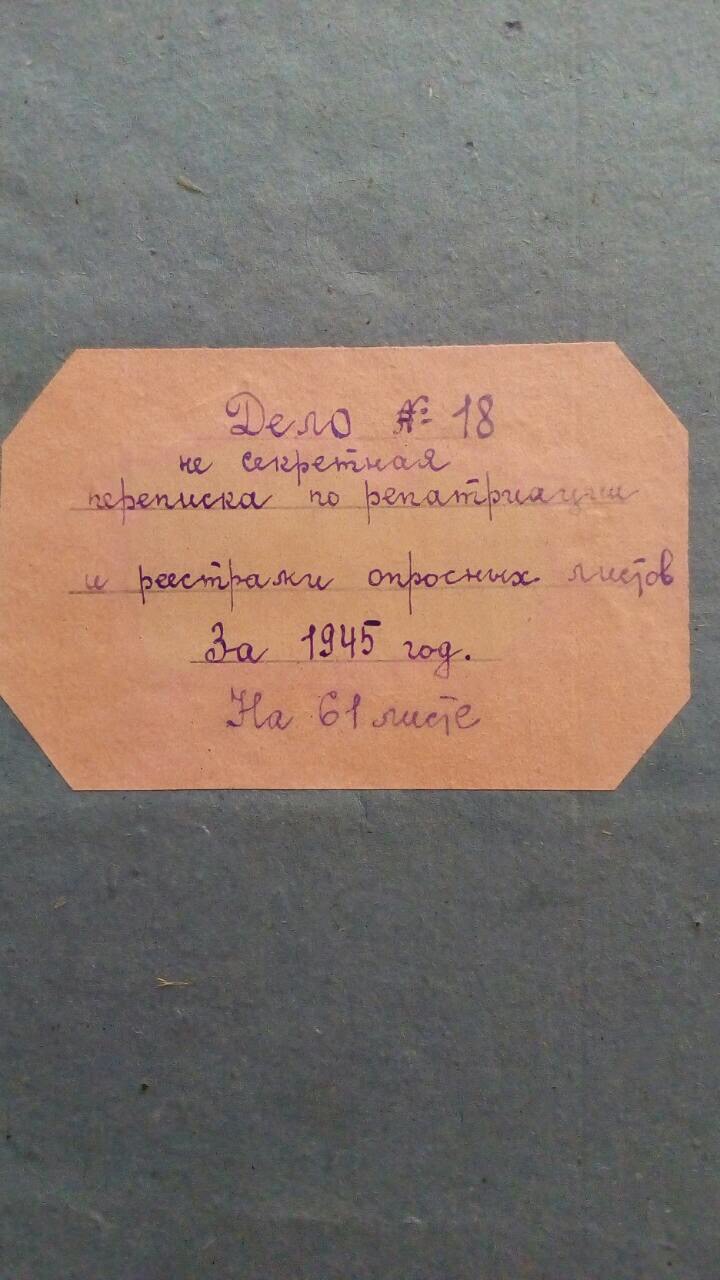 Дело № 18
не секретная
переписка по репатриации
и реестрами опросных листов
За 1945 год.
На 61 листе